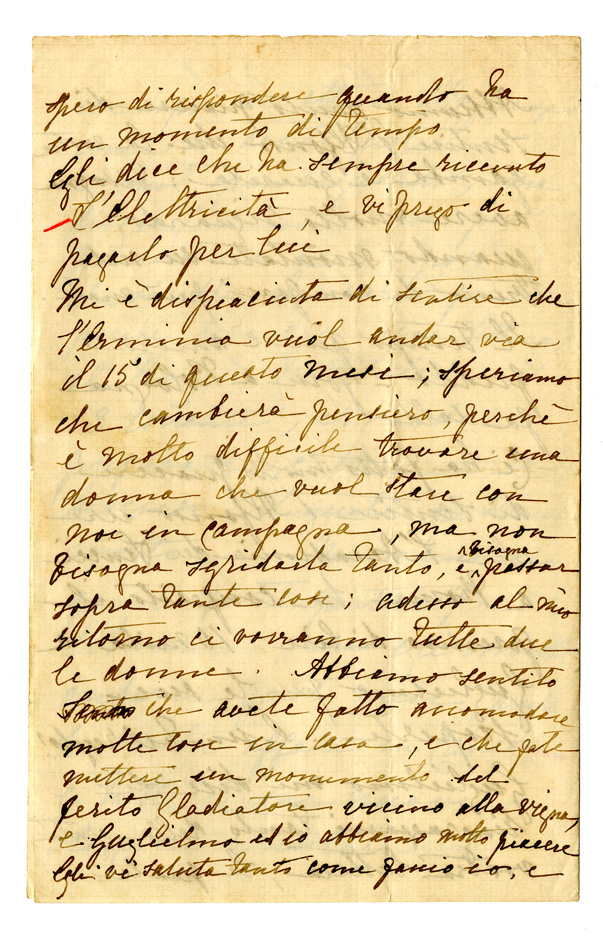 spero di rispondere quando ha
un momento di tempo
Egli dice che ha sempre ricevuto
l'Elettricità e vi prego di
pagarlo per lui
Mi è dispiaciuta di sentire che
l'Erminia vuol andar via
il 15 di questo mese; speriamo
che cambierà pensiero, perchè
è molto difficile trovare una
donna che vuol stare con
noi in campagna, ma non
bisogna sgridarla tanto, e bisogna passar
sopra tante cose; adesso al mio
ritorno ci vorranno tutte due
le donne. Abbiamo sentito
che avete fatto accomodare
molte cose in casa, e che fate
mettere un monumento del
ferito Gladiatore vicino alla vigna,
e Guglielmo ed io abbiamo molto piacere
Egli vi saluta tanto come facio io, e